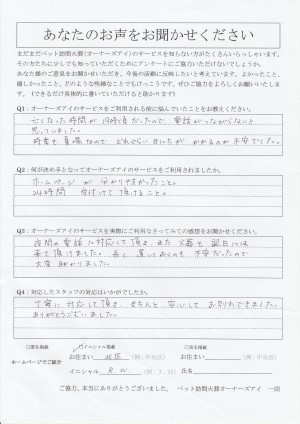 あなたのお声をお聞かせください
まだまだペット訪問火葬(オーナーズアイ)のサービスを知らない方がたくさんいらっしゃいます。
その方たちに少しでも知っていただくためにアンケートにご協力いただけないでしょうか。
あなた様のご意見をお聞かせいただき、今後の活動に反映したいと考えています。よかったこと、
嬉しかったこと、どのような些細なことでもけっこうです。ぜひご協力をよろしくお願いいたします。
(できるだけ具体的に書いていただけると助かります)
Q1：オーナーズアイのサービスをご利用される前に悩んでいたことをお教えください。
亡くなった時間が19時頃だったので、電話がつながらないと
思っていました。
時季も真夏なので、どれぐらい日にちがかかるのか不安でした。
Q2：何が決め手となってオーナーズアイのサービスをご利用されましたか。
ホームページが分かりやすかったこと。
24時間受付けて頂けること。
Q3：オーナーズアイのサービスを実際にご利用なさってみての感想をお聞かせください。
夜間の電話に対応して頂き、また火葬も翌日には
来て頂けました。長く置いておくのも不安だったので
大変助かりました。
Q4：対応したスタッフの対応はいかがでしたか。
丁寧に対応して頂き、きちんと、安心してお別れできました。
ありがとうございました。
□匿名掲載
□イニシャル掲載
□実名掲載
ホームページでご紹介
お住まい 北区 (例：中央区)
お住まい (例：中央区)
イニシャル R.W.
氏名
ご協力、本当にありがとうございました。 ペット訪問火葬オーナーズアイ 一同